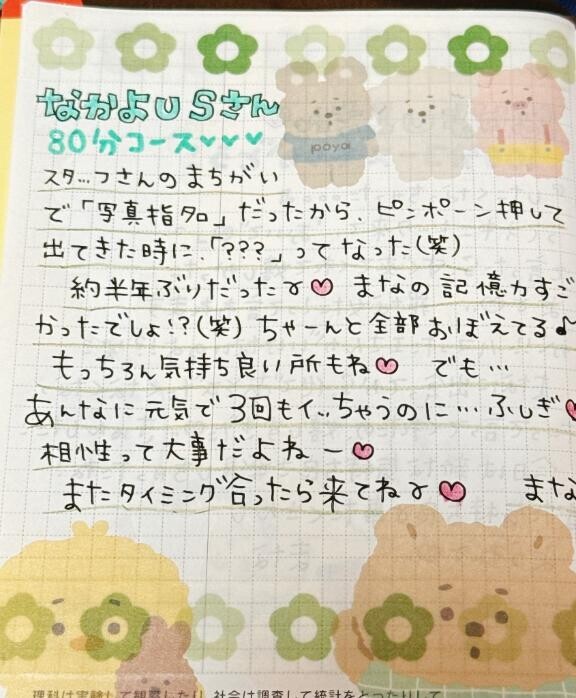 なかよUSさん
80分コース♥♥♥
poya!
スタ…フさんのまちがい
で「写真指名」だったから、ピンポーン押して
出てきた時に、「???」ってなった(笑)
約半年ぶりだったr♡ まなの記憶力すご
かったでしょ!?(笑) ちゃーんと全部おぼえてる♪
もっちろん気持ち良い所もね♡ でも…
あんなに元気で3回もイ…ちゃうのに…ふしぎ♡
相性って大事だよねー♡
またタイミング合ったら来てねr♡ まな
理科は実験して観察したり、社会は調査して統計をとったりして